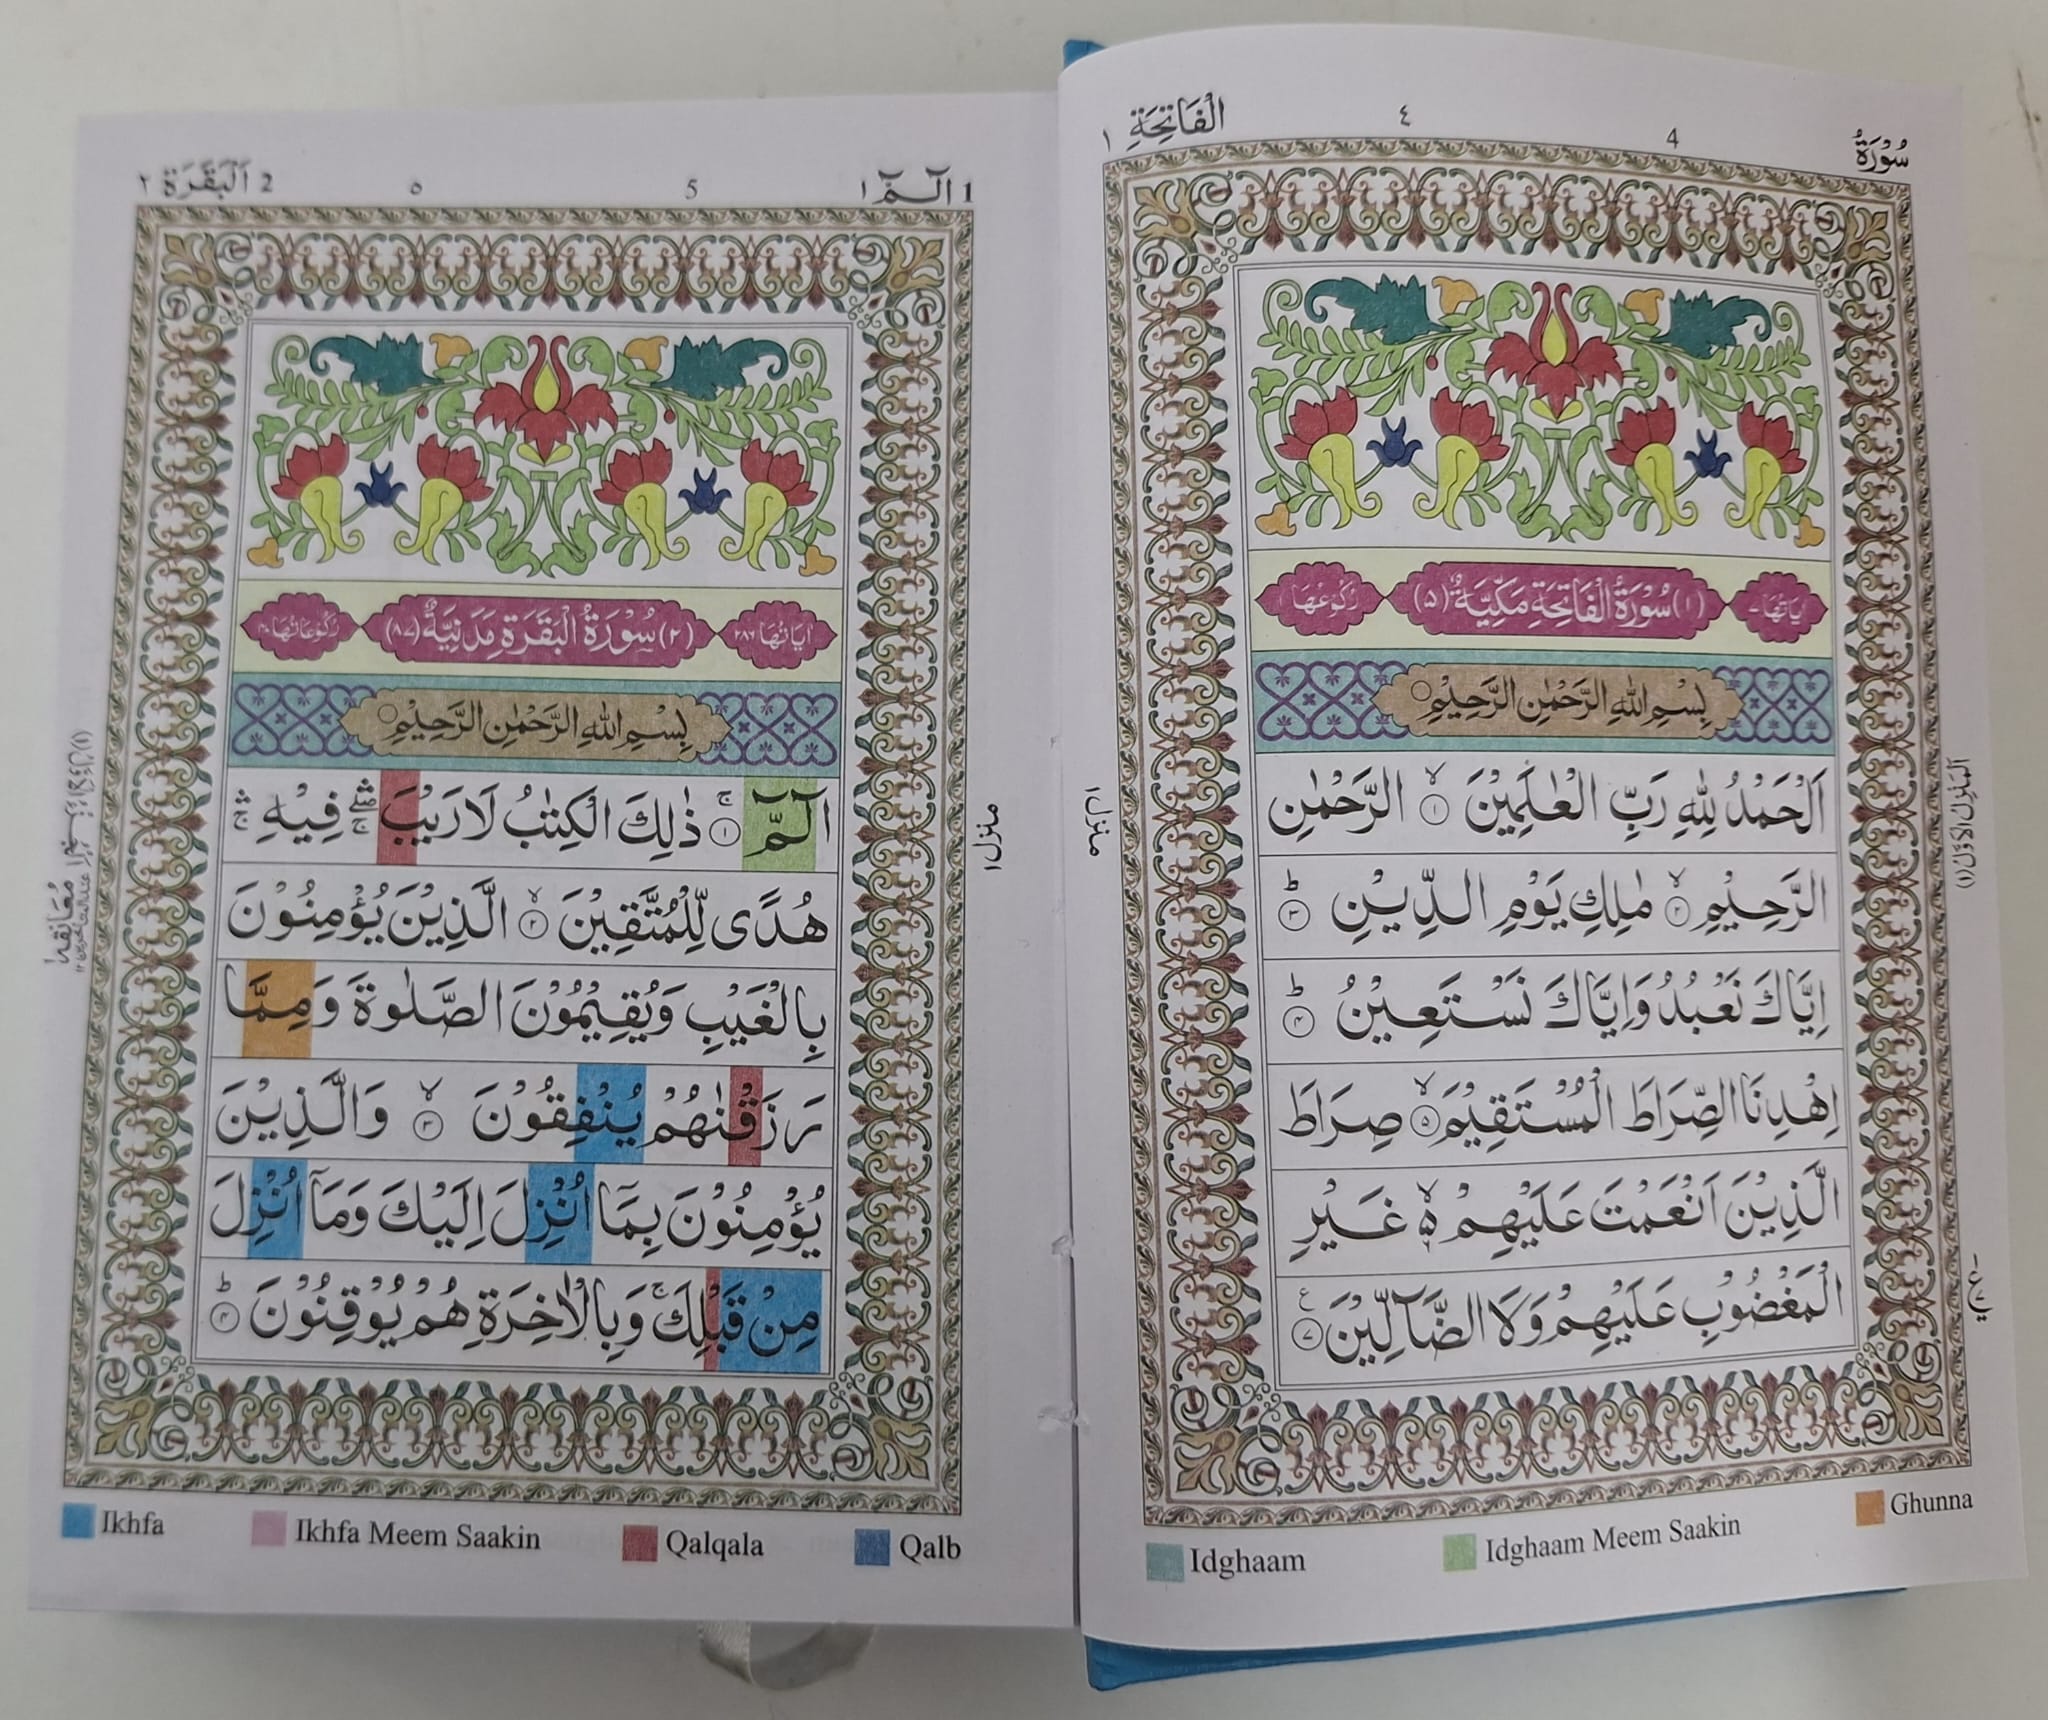 سُوْرَةُ 4 ٤ الْفَاتِحَةِ ١
اٰيَاتُهَا ٧ (١) سُوْرَةُ الْفَاتِحَةِ مَكِّيَّةٌ (٥) رُكُوْعُهَا ١
بِسْمِ اللّٰهِ الرَّحْمٰنِ الرَّحِيْمِ ○
اَلْحَمْدُ لِلّٰهِ رَبِّ الْعٰلَمِيْنَ ۙ ١ الرَّحْمٰنِ
الرَّحِيْمِ ۙ ٢ مٰلِكِ يَوْمِ الدِّيْنِ ؕ ٣
اِيَّاكَ نَعْبُدُ وَاِيَّاكَ نَسْتَعِيْنُ ؕ ٤
اِهْدِنَا الصِّرَاطَ الْمُسْتَقِيْمَ ۙ ٥ صِرَاطَ
الَّذِيْنَ اَنْعَمْتَ عَلَيْهِمْ ۙ۬ غَيْرِ
الْمَغْضُوْبِ عَلَيْهِمْ وَلَا الضَّآلِّيْنَ ع ٧
اَلْمَنْزِلُ الْاَوَّلُ (١)
منزل ١
Idghaam Idghaam Meem Saakin Ghunna
1 الٓـمّٓ ١ 5 ٥ 2 اَلْبَقَرَة ٢
اٰيَاتُهَا ٢٨٦ (٢) سُوْرَةُ الْبَقَرَةِ مَدَنِيَّةٌ (٨٧) رُكُوْعَاتُهَا ٤٠
بِسْمِ اللّٰهِ الرَّحْمٰنِ الرَّحِيْمِ ○
الٓـمّٓ ۚ ١ ذٰلِكَ الْكِتٰبُ لَا رَيْبَ ۖۛۚ فِيْهِ ۛۚ
هُدًى لِّلْمُتَّقِيْنَ ۙ ٢ الَّذِيْنَ يُؤْمِنُوْنَ
بِالْغَيْبِ وَيُقِيْمُوْنَ الصَّلٰوةَ وَمِمَّا
رَزَقْنٰهُمْ يُنْفِقُوْنَ ۙ ٣ وَالَّذِيْنَ
يُؤْمِنُوْنَ بِمَآ اُنْزِلَ اِلَيْكَ وَمَآ اُنْزِلَ
مِنْ قَبْلِكَ ۚ وَبِالْاٰخِرَةِ هُمْ يُوْقِنُوْنَ ؕ ٤
منزل ١
مُعَانَقَة ١
Ikhfa Ikhfa Meem Saakin Qalqala Qalb